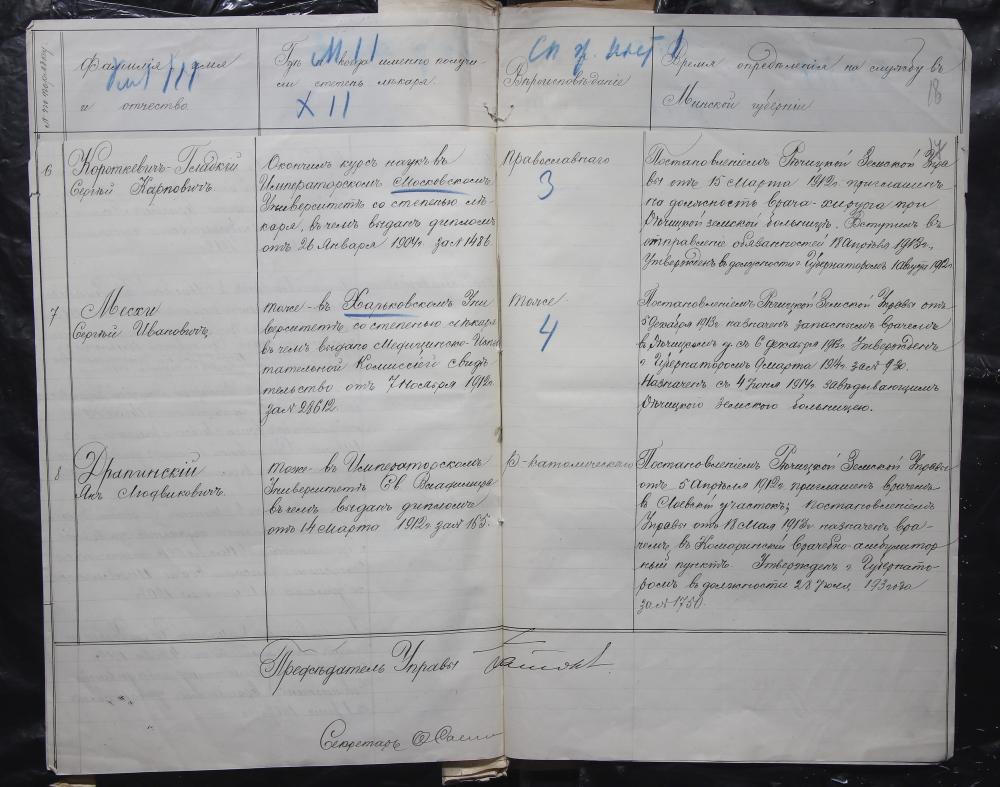 № по порядку.
Фамилія, имя
и отчество.
Гдѣ и когда именно получи-
ли степень лѣкаря.
XII
Вѣроисповѣданіе
Время опредѣленія на службу въ
Минской губерніи
18
6
Короткевичъ-Гладкій
Сергѣй Карповичъ.
Окончилъ курсъ наукъ въ
Императорскомъ Московскомъ
Университетѣ со степенью лѣ-
каря, въ чемъ выданъ дипломъ
отъ 26 Января 1904 г. за № 1486.
Православнаго
3
Постановленіемъ Рѣчицкой Земской Упра-
вы отъ 15 Марта 1912 г. приглашенъ
на должность врача-хирурга при
Рѣчицкой земской больницѣ. Вступилъ въ
отправленіе обязанностей 18 Апрѣля
Утвержденъ въ должности г. Губернаторомъ
7
Мески
Сергѣй Ивановичъ,
тоже - въ Харьковскомъ Уни-
верситетѣ со степенью лѣкаря
въ чемъ выдано Медицинско-Испы-
тательной Комиссіей свидѣ-
тельство отъ 7 Ноября 1912 г.
за № 28612.
тоже
4
Постановленіемъ Рѣчицкой Земской Управы отъ
5 Декабря 1913 г. назначенъ запаснымъ врачемъ
въ Рѣчицкомъ у. съ 6 декабря 1913 г. Утвержденъ
г. Губернаторомъ 9 марта 1914 г. за № 930.
Назначенъ съ 4 Іюня 1914 г. завѣдывающимъ
Рѣчицкого земского больницею.
8
Драпинскій
Янъ Людвиковичъ.
тоже - въ Императорскомъ
Университетѣ Св. Владиміра
въ чемъ выданъ дипломъ
отъ 14 Марта 1912 г. за № 165.
Р-католическаго
Постановленіемъ Рѣчицкой Земской Управы
отъ 5 Апрѣля 1912 г. приглашенъ врачемъ
въ Лоевскій участокъ; постановленіемъ
Управы отъ 18 Мая назначенъ вра-
чемъ въ Комаринскій врачебно-амбулатор-
ный пунктъ. Утвержденъ г. Губернато-
ромъ въ должности 28 года
за № 1750.
Предсѣдатель Управы
Секретарь